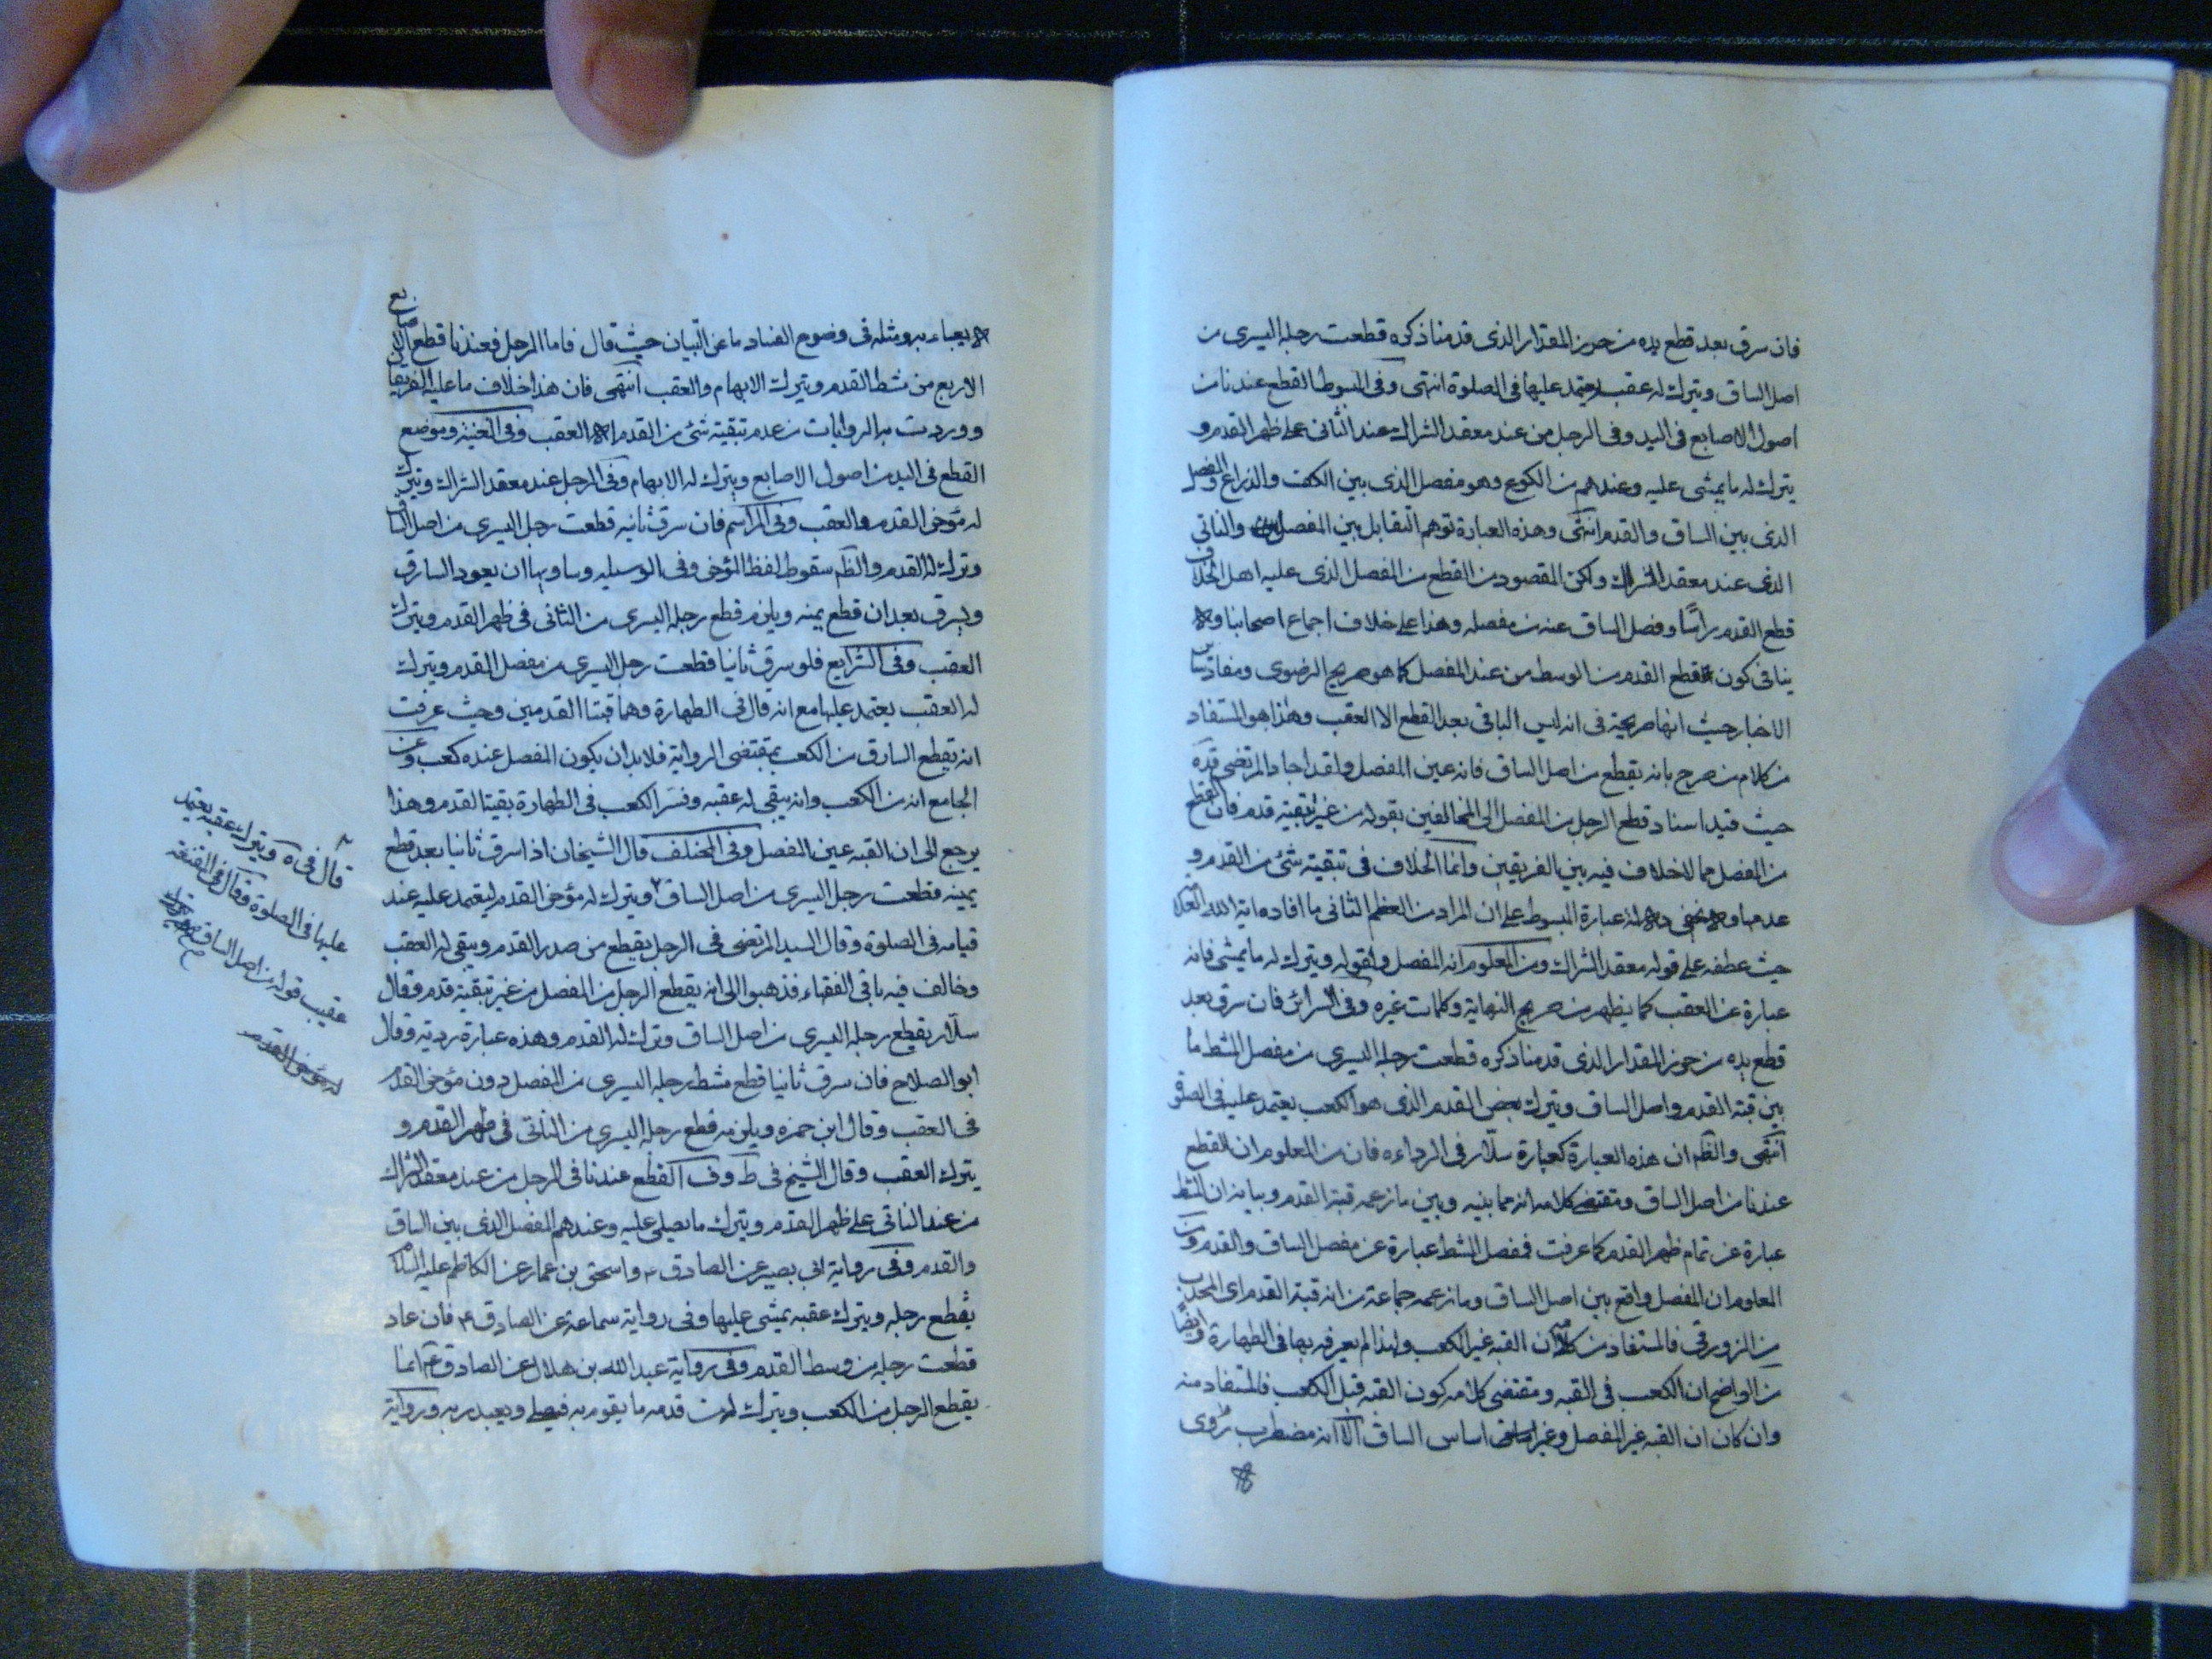 فان سرق بعد قطع يده من حرز المقدار الذى قدمنا ذكره قطعت رجله اليسرى من
اصل الساق ويترك له عقب يعتمد عليها فى الصلوة انتهى وفى المبسوط القطع عندنا من
اصول الاصابع فى اليد وفى الرجل من عند معقد الشراك عند الناتى على ظهر القدم و
يترك له ما يمشى عليه وعندهم من الكوع وهو مفصل الذى بين الكف والذراع والمفصل
الذى بين الساق والقدم انتهى وهذه العبارة توهم التقابل بين المفصل والناتى
الذى عند معقد الشراك ولكن المقصود من القطع من المفصل الذى عليه اهل الخلاف
قطع القدم راسًا وفصل الساق عنه من مفصله وهذا على خلاف اجماع اصحابنا ولا
ينافى كون قطع القدم من الوسط من عند المفصل كما هو صريح الرضوى ومفاد ساير
الاخبار حيث انها صريحة فى انه ليس الباقى بعد القطع الا العقب وهذا هو المستفاد
من كلام من صرح بانه يقطع من اصل الساق فانه عين المفصل ولقد اجاد المرتضى قده
حيث قيد اسناد قطع الرجل من المفصل الى المخالفين بقوله من غير تبقية قدم فان القطع
من المفصل مما لا خلاف فيه بين الفريقين وانما الخلاف فى تبقية شئ من القدم و
عدمها ولا يخفى دلالة عبارة المبسوط على ان المراد من العظم الناتى ما افاده اية الله العلامة
حيث عطفه على قوله معقد الشراك ومن المعلوم انه المفصل ولقوله ويترك له ما يمشى فانه
عبارة عن العقب كما يظهر من صريح النهاية وكلمات غيره وفى السرائر فان سرق بعد
قطع يده من حرز المقدار الذى قدمنا ذكره قطعت رجله اليسرى من مفصل المشط ما
بين قبة القدم واصل الساق ويترك بعض القدم الذى هو الكعب يعتمد عليه فى الصلوة
انتهى والظم ان هذه العبارة كعبارة سلّار فى الرداءه فان من المعلوم ان القطع
عندنا من اصل الساق ومقتضى كلامه انه مما بينه وبين ما زعمه قبة القدم وبيانه ان المشط
عبارة عن تمام ظهر القدم كما عرفت فمفصل المشط عبارة عن مفصل الساق والقدم ومن
المعلوم ان المفصل واقع بين اصل الساق وما زعمه جماعة من انه قبة القدم اى المحدب
من الزورقى فالمستفاد من كلامه ان القبه غير الكعب ولذا لم يعرفه بها فى الطهارة وايضًا
من الواضح ان الكعب فى القبه ومقتضى كلامه كون القبه قبل الكعب فالمستفاد منه
وان كان ان القبه غير المفصل وغير اساس الساق الا انه مضطرب رُوى
لا
لا يعباء به ومثله فى وضوح الفساد ما عن التبيان حيث قال فاما الرجل فعندنا قطع الاصابع
الاربع من مشط القدم ويترك الابهام والعقب انتهى فان هذا خلاف ما عليه الفريقان
ووردت به الروايات من عدم تبقية شئ من القدم الا العقب وفى الغنية وموضع
القطع فى اليد من اصول الاصابع ويترك له الابهام وفى الرجل عند معقد الشراك ويترك
له مؤخر القدم والعقب وفى المراسم فان سرق ثانيه قطعت رجله اليسرى من اصل الساق
وترك له القدم والظم سقوط لفظ المؤخر وفى الوسيله وساوبها ان يعود السارق
ويسرق بعد ان قطع يمينه ويلزم قطع رجله اليسرى من الناتى فى ظهر القدم ويترك
العقب وفى الشرايع فلو سرق ثانيا قطعت رجله اليسرى من مفصل القدم ويترك
له العقب يعتمد عليها مع انه قال فى الطهارة وهما قبتا القدمين وحيث عرفت
انه يقطع السارق من الكعب بمقتضى الرواية فلابد ان يكون المفصل عنده كعب وعن
الجامع انه من الكعب وانه يبقى له عقبه وفسر الكعب فى الطهارة بقبة القدم وهذا
يرجع الى ان القبه عين المفصل وفى المختلف قال الشيخان اذا سرق ثانيا بعد قطع
يمينه قطعت رجله اليسرى من اصل الساق ويترك له مؤخر القدم ليعتمد عليه عند
قيامه فى الصلوة وقال السيد المرتضى فى الرجل يقطع من صدر القدم ويبقى له العقب
وخالف فيه باقى الفقهاء فذهبوا الى انه يقطع الرجل من المفصل من غير تبقية قدم وقال
سلّار يقطع رجله اليسرى من اصل الساق وترك له القدم وهذه عبارة ردية وقال
ابو الصلاح فان سرق ثانيا قطع مشط رجله اليسرى من المفصل دون مؤخر القدم
فى العقب وقال ابن حمزه ويلزمه قطع رجله اليسرى من الناتى فى ظهر القدم و
يترك العقب وقال الشيخ فى ط وف القطع عندنا فى الرجل من عند معقد الشراك
من عند الناتى على ظهر القدم ويترك ما يصلى عليه وعندهم المفصل الذى بين الساق
والقدم وفى رواية ابى بصير عن الصادق ع واسحق بن عمار عن الكاظم عليه السلام
يقطع رجله ويترك عقبه يمشى عليها وفى رواية سماعة عن الصادق ع فان عاد
قطعت رجله من وسط القدم وفى رواية عبد الله بن هلال عن الصادق ع انما
يقطع الرجل من الكعب ويترك له من قدمه ما يقوم به فيصلى ويعبد ربه ورواية
قال فى ه ويترك عقبه يعتمد
عليها فى الصلوة وقال فى المقنعة
عقيب قوله من اصل الساق ويترك
له مؤخر القدم